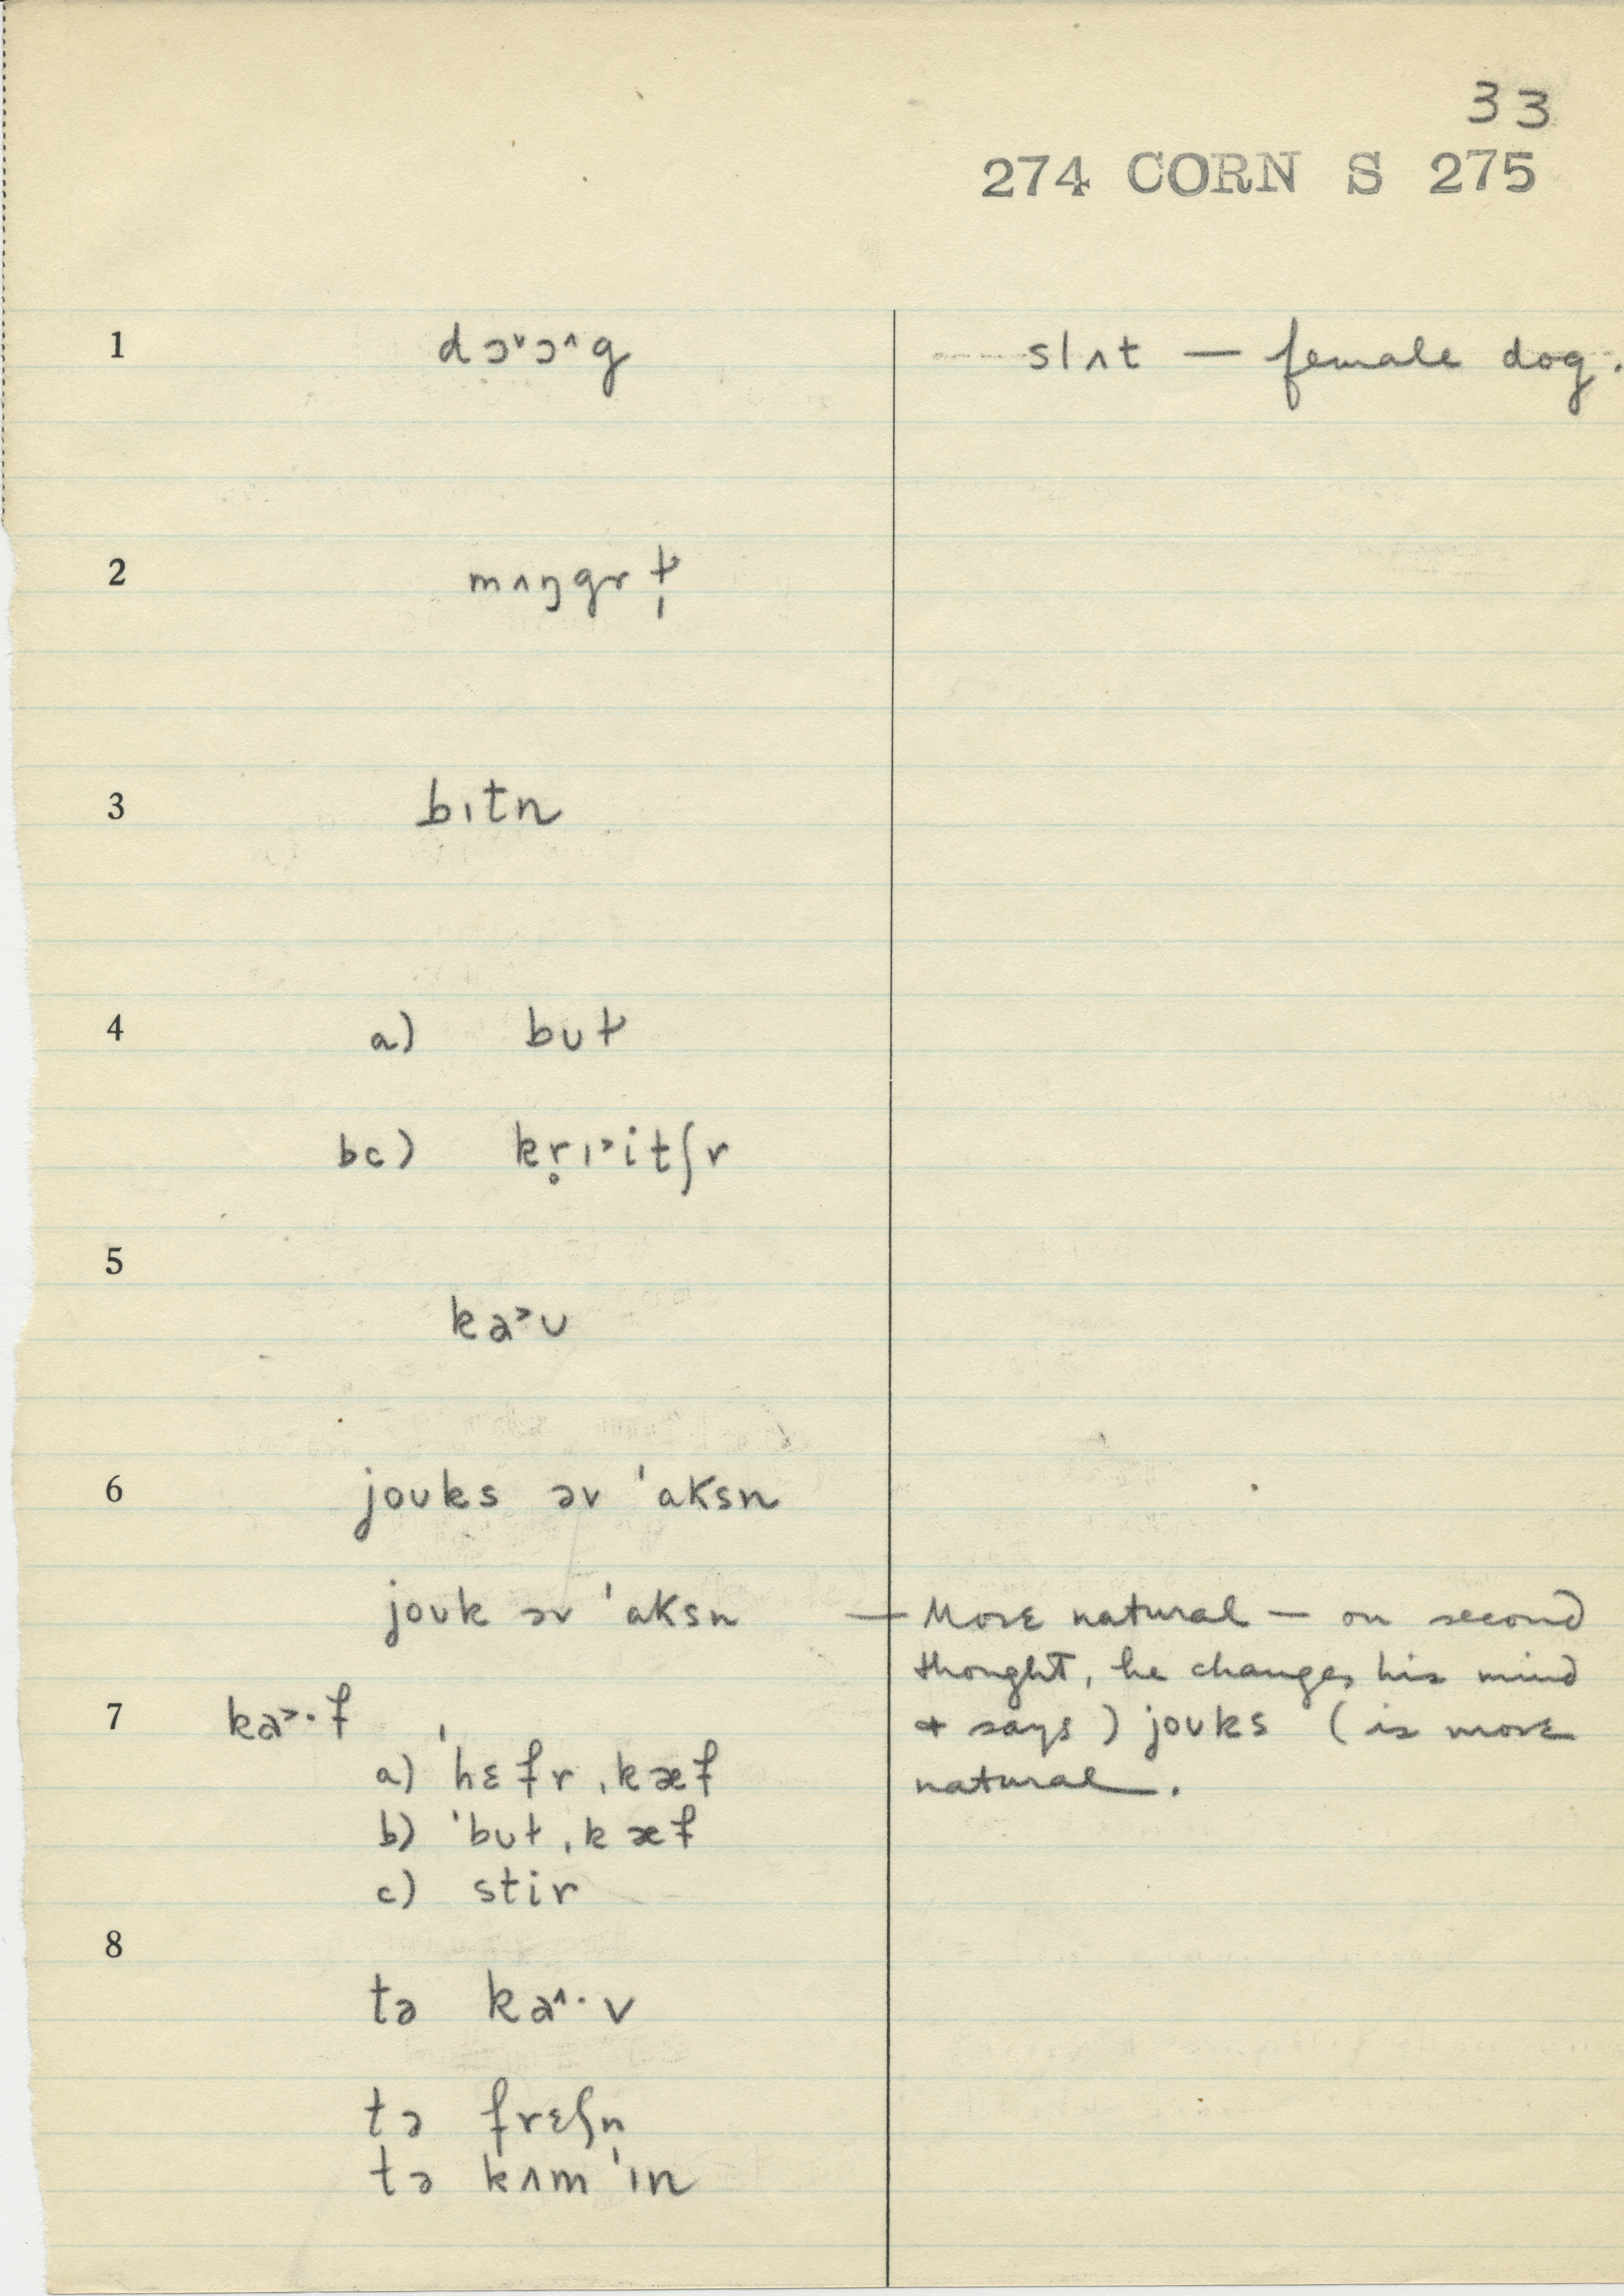 33
274 CORN S 275
1 dɔ˅ɔ˄g slʌt — female dog.
2 mʌŋgrɫ̩
3 bɪtn
4 a) bʊɫ
bc) kr̥ɪ˃itʃr
5 ka˃ʊ
6 joʊks əv ˈaksn
joʊk əv ˈaksn — More natural — on second
thought, he changes his mind
7 ka˃·f & says) joʊks (is more
a) ˈhɛfr ˌkæf natural.
b) ˈbʊɫ ˌkæf
c) stir
8
tə ka˄·v
tə frɛʃn̩
tə kʌm ˈɪn